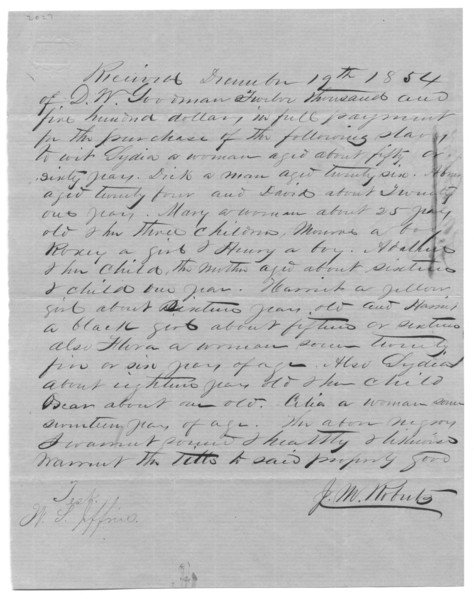 2027
Received December 19th 1854
of D. W. Goodman Twelve thousand and
five hundred dollars in full payment
for the purchase of the following slaves
to wit Lydia a woman aged about fifty or
sixty years. Dick a man aged twenty six.
aged twenty four and David about Twenty
one years. Mary a woman about 25 years
old & her three children, Monroe a boy
Roxey a girl & Henry a boy.
& her child, the mother aged about sixteen
& child one year. Harriet a yellow
girl about Sixteen years old and Harriet
a black girl about fifteen or sixteen
also Flora a woman some twenty
five or six years of age. Also Lydia
about eighteen years old & her child
about one old. Celia a woman some
seventeen years of age. The above negroes
I warrant sound & healthy & likewise
warrant the title to said property good
J. M. Roberts
Test.